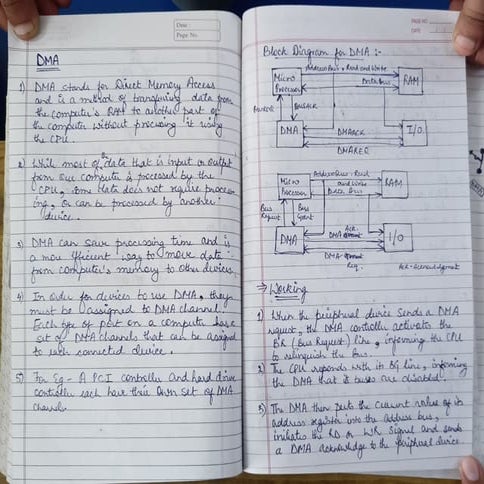 Date :
Page No.
DMA
1) DMA stands for Direct Memory Access
and is a method of transferring data from
the computer's RAM to another part of
the computer without processing it using
the CPU.
2) While most of data that is input or output
from our computer is processed by the
CPU, some data does not require process
ing, or can be processed by another
device.
3) DMA can save processing time and is
a more efficient way to move data
from computer's memory to other devices.
4) In order for devices to use DMA, they
must be assigned to DMA channel.
Each type of port on a computer has a
set of DMA channels that can be assigned
to each connected device.
5) For Eg - A PCI controller and hard drive
controller each have their own set of DMA
channels.
PAGE NO.
DATE
Block Diagram for DMA :-
Address Bus + Read and Write
Micro
Processor
Data Bus
RAM
BUSREQ
BUSACK
DMA
DMAACK
DMAREQ
I/O
Address Bus + Read
and Write
Micro
Processor
Data Bus
RAM
Bus
Request
Bus
Grant
DMA
Ack.
DMA
DMA
Req.
I/O
Ack - Acknowledgement
⇒ Working
1) When the peripheral device sends a DMA
request, the DMA controller activates the
BR (Bus Request) line, informing the CPU
to relinquish the bus.
2) The CPU responds with its BG line, informing
the DMA that its buses are disabled.
3) The DMA then puts the current value of its
address register into the address bus,
initiates the RD or WR signal and sends
a DMA acknowledge to the peripheral device.